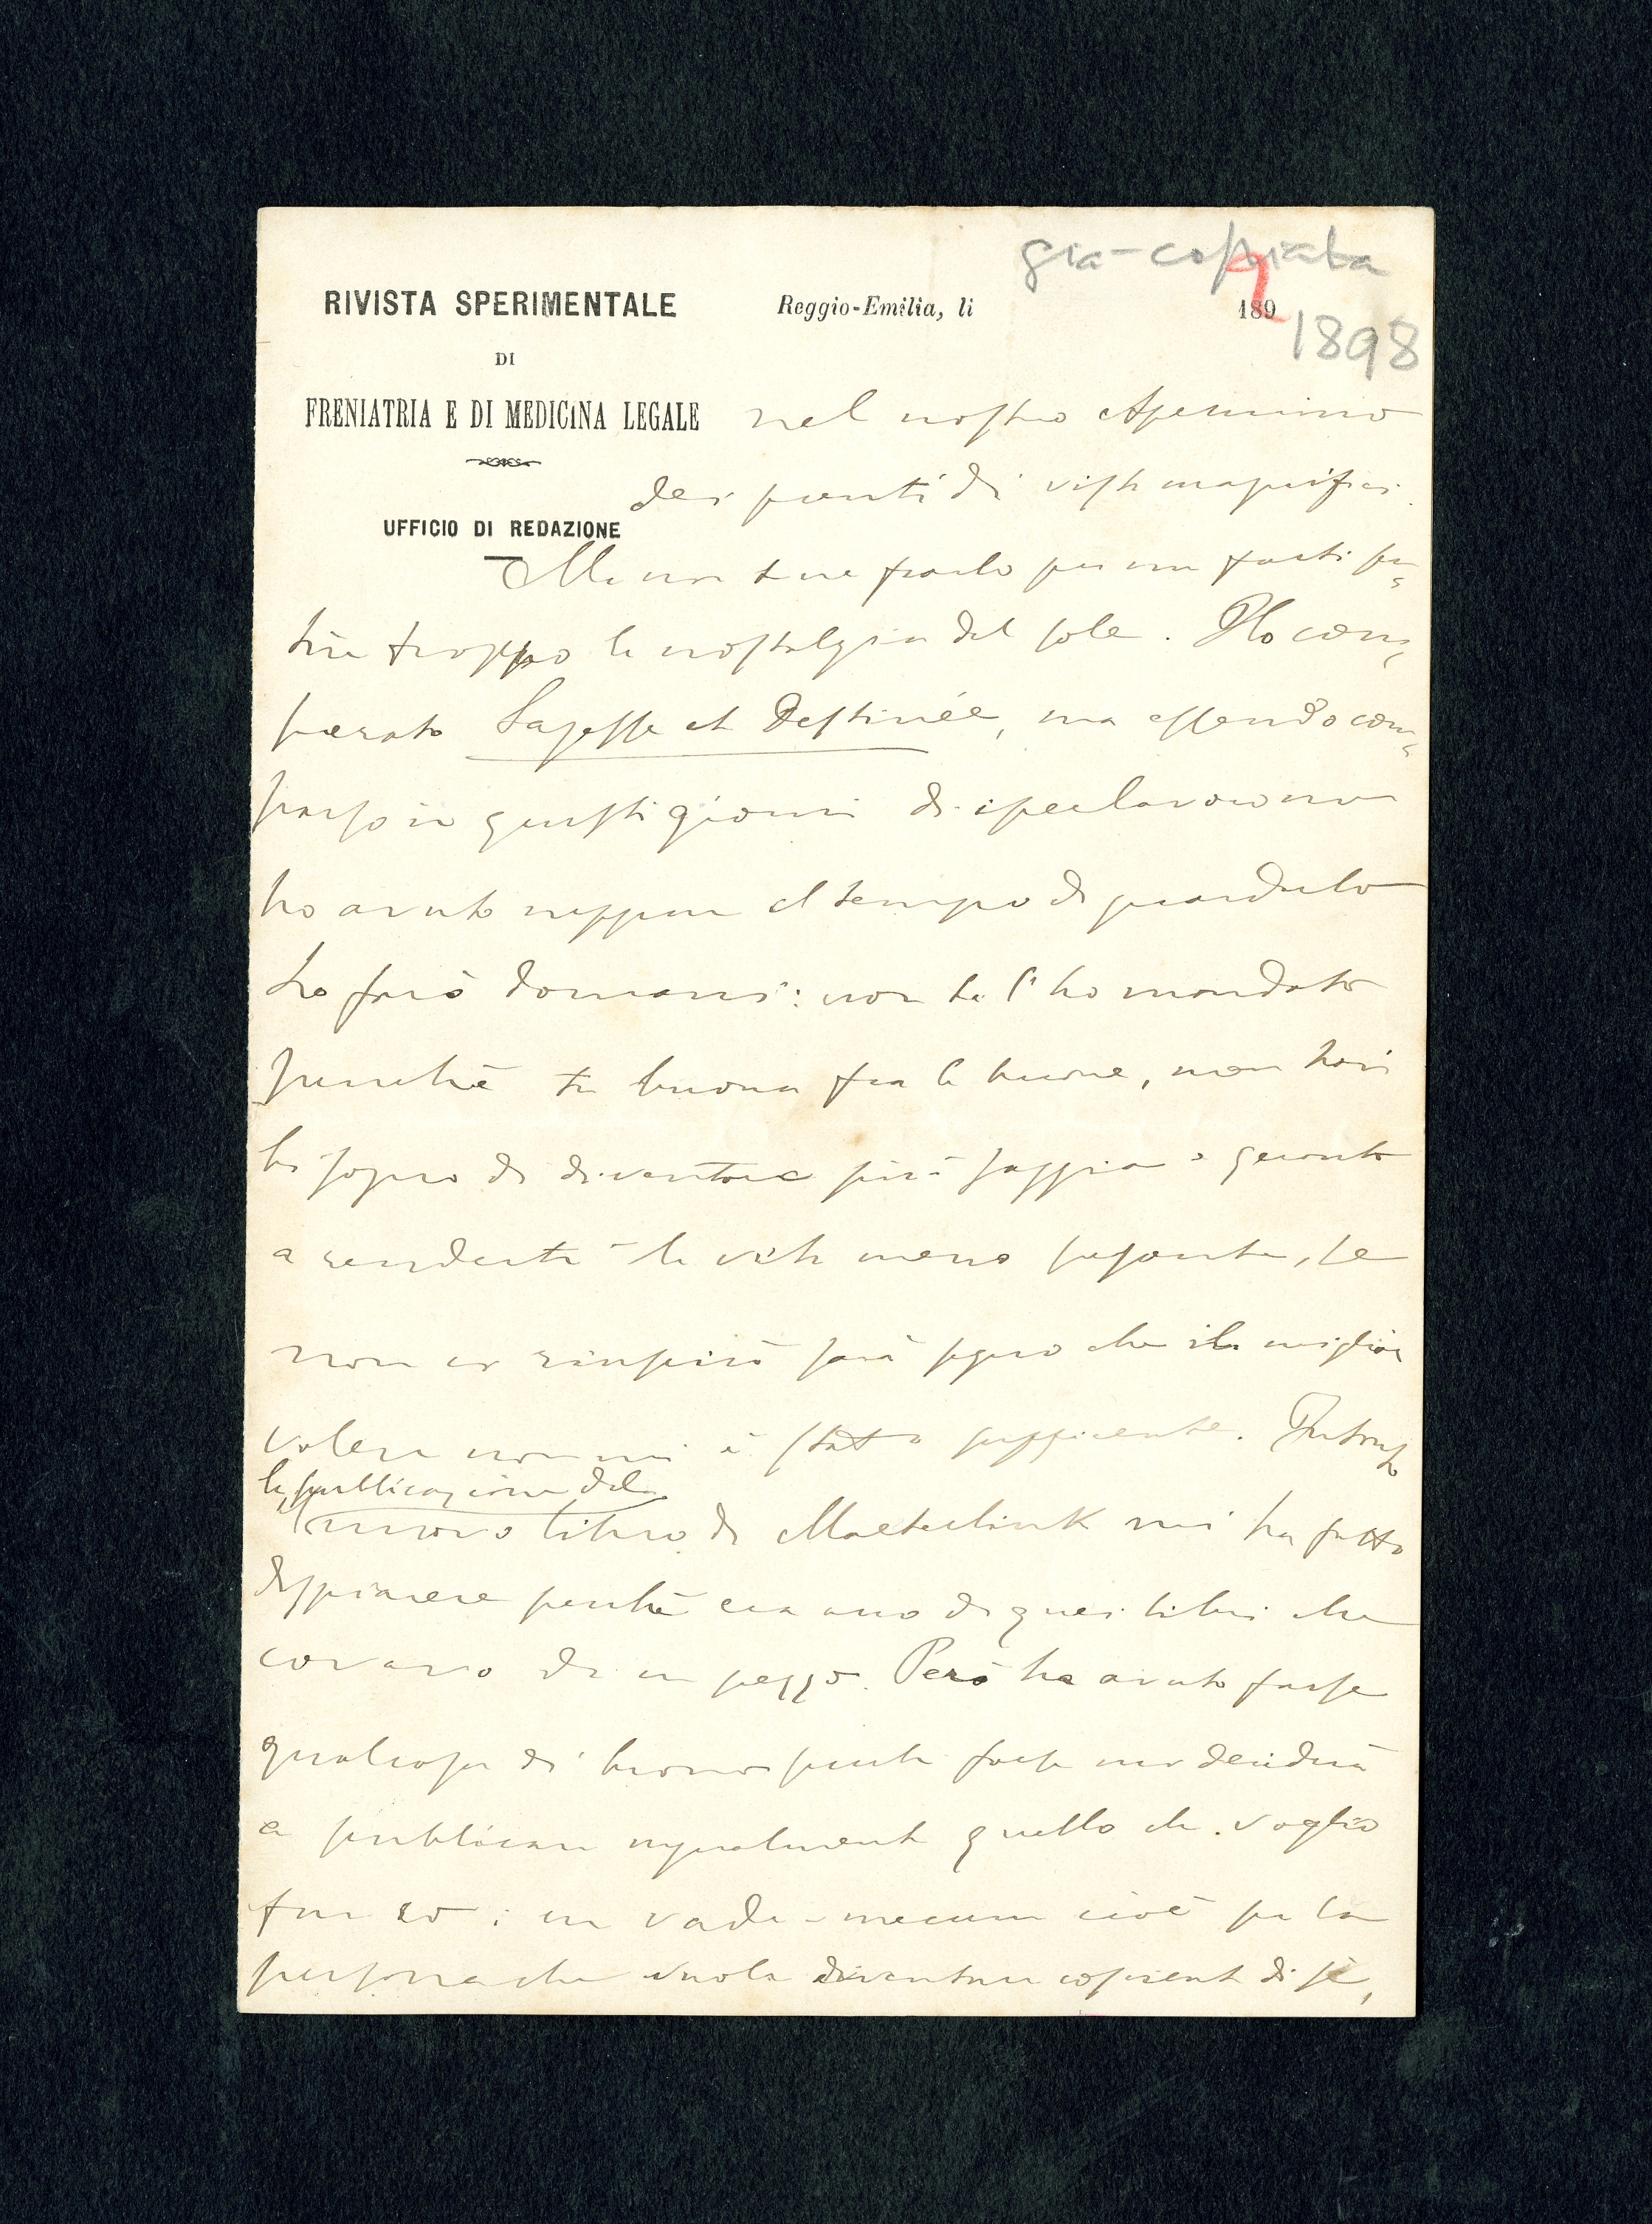 già-coppiata
RIVISTA SPERIMENTALE
DI
FRENIATRIA E DI MEDICINA LEGALE
UFFICIO DI REDAZIONE
Reggio-Emilia, li 189
1898
nel nostro Apennino
dei punti di vista magnifici.
Ma non te ne parlo per non farti pa-
tire troppo la nostalgia del sole. Ho com-
perato Sagesse et Destinée, ma essendo com-
parso in questi giorni di iperlavoro non
ho avuto neppure il tempo di guardarlo
Lo farò domani: non te l'ho mandato
perchè tu buona fra le buone, non hai
bisogno di diventare più saggia e quanto
a renderti la vita meno pesante, se
non ci riuscirò sarà segno che il miglior
volere non mi è stato sufficiente. Intanto
la pubblicazione del
nuovo libro di Maeterlink mi ha fatto
dispiacere perchè era uno di quei libri che
covavo da un pezzo. Però ha avuto forse
qualcosa di buono perchè forse mi deciderà
a publicare ugualmente quello che voglio
fare io: un vade-mecum cioè per la
persona che vuole diventare cosciente di sè,